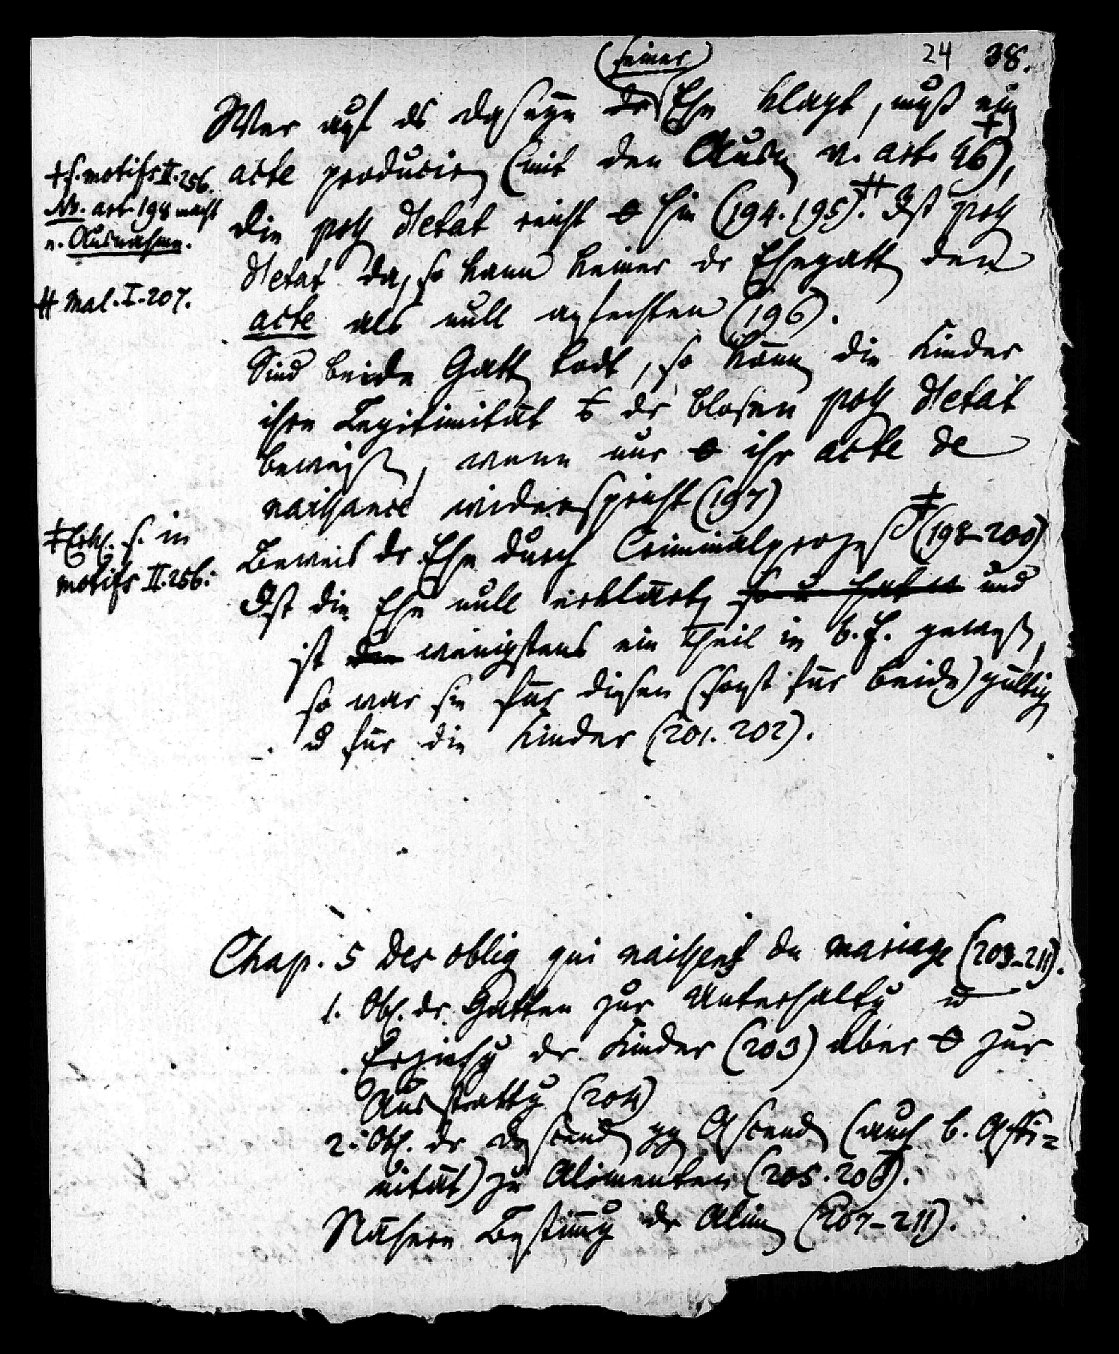 24 38.
(seiner)
Wer auf ds Daseyn der Ehe klagt, muß ein
acte produciren (mit den Ausn. v. art. 46) ‡,
die poss. d'etat reicht θ hin (194. 195). ‡‡ Ist poss.
d'etat da, so kann keiner der Ehegatten den
acte als null anfechten (196).
Sind beide Gatten todt, so können die Kinder
ihre Legitimität der blosen poss. d'etat
beweisen, wenn nur θ ihr acte de
naissance widerspricht (197)
Beweis der Ehe durch Criminalprozeß ‡ (198-200)
Ist die Ehe null erklärt, und
ist wenigstens ein Theil in b. f. gewesen,
so war sie für diesen (sonst für beide) gültig
u für die Kinder (201. 202).
‡ s. motifs II. 256.
Nb. art. 198 macht
e. Ausnahme.
‡‡ Mal. I. 207.
‡ Erkl. s. in
motifs II. 256.
Chap. 5 Des oblig. qui naissent du mariage (203-211).
1. Obl. der Gatten zur Unterhaltg u
Erziehg der Kinder (203) aber θ zur
Ausstattg (204)
2. Obl. der descend. gg Ascend. (auch b. Affi=
nität) zu Alimenten (205. 206).
Nähere Bestimmg der Alim. (207-211).